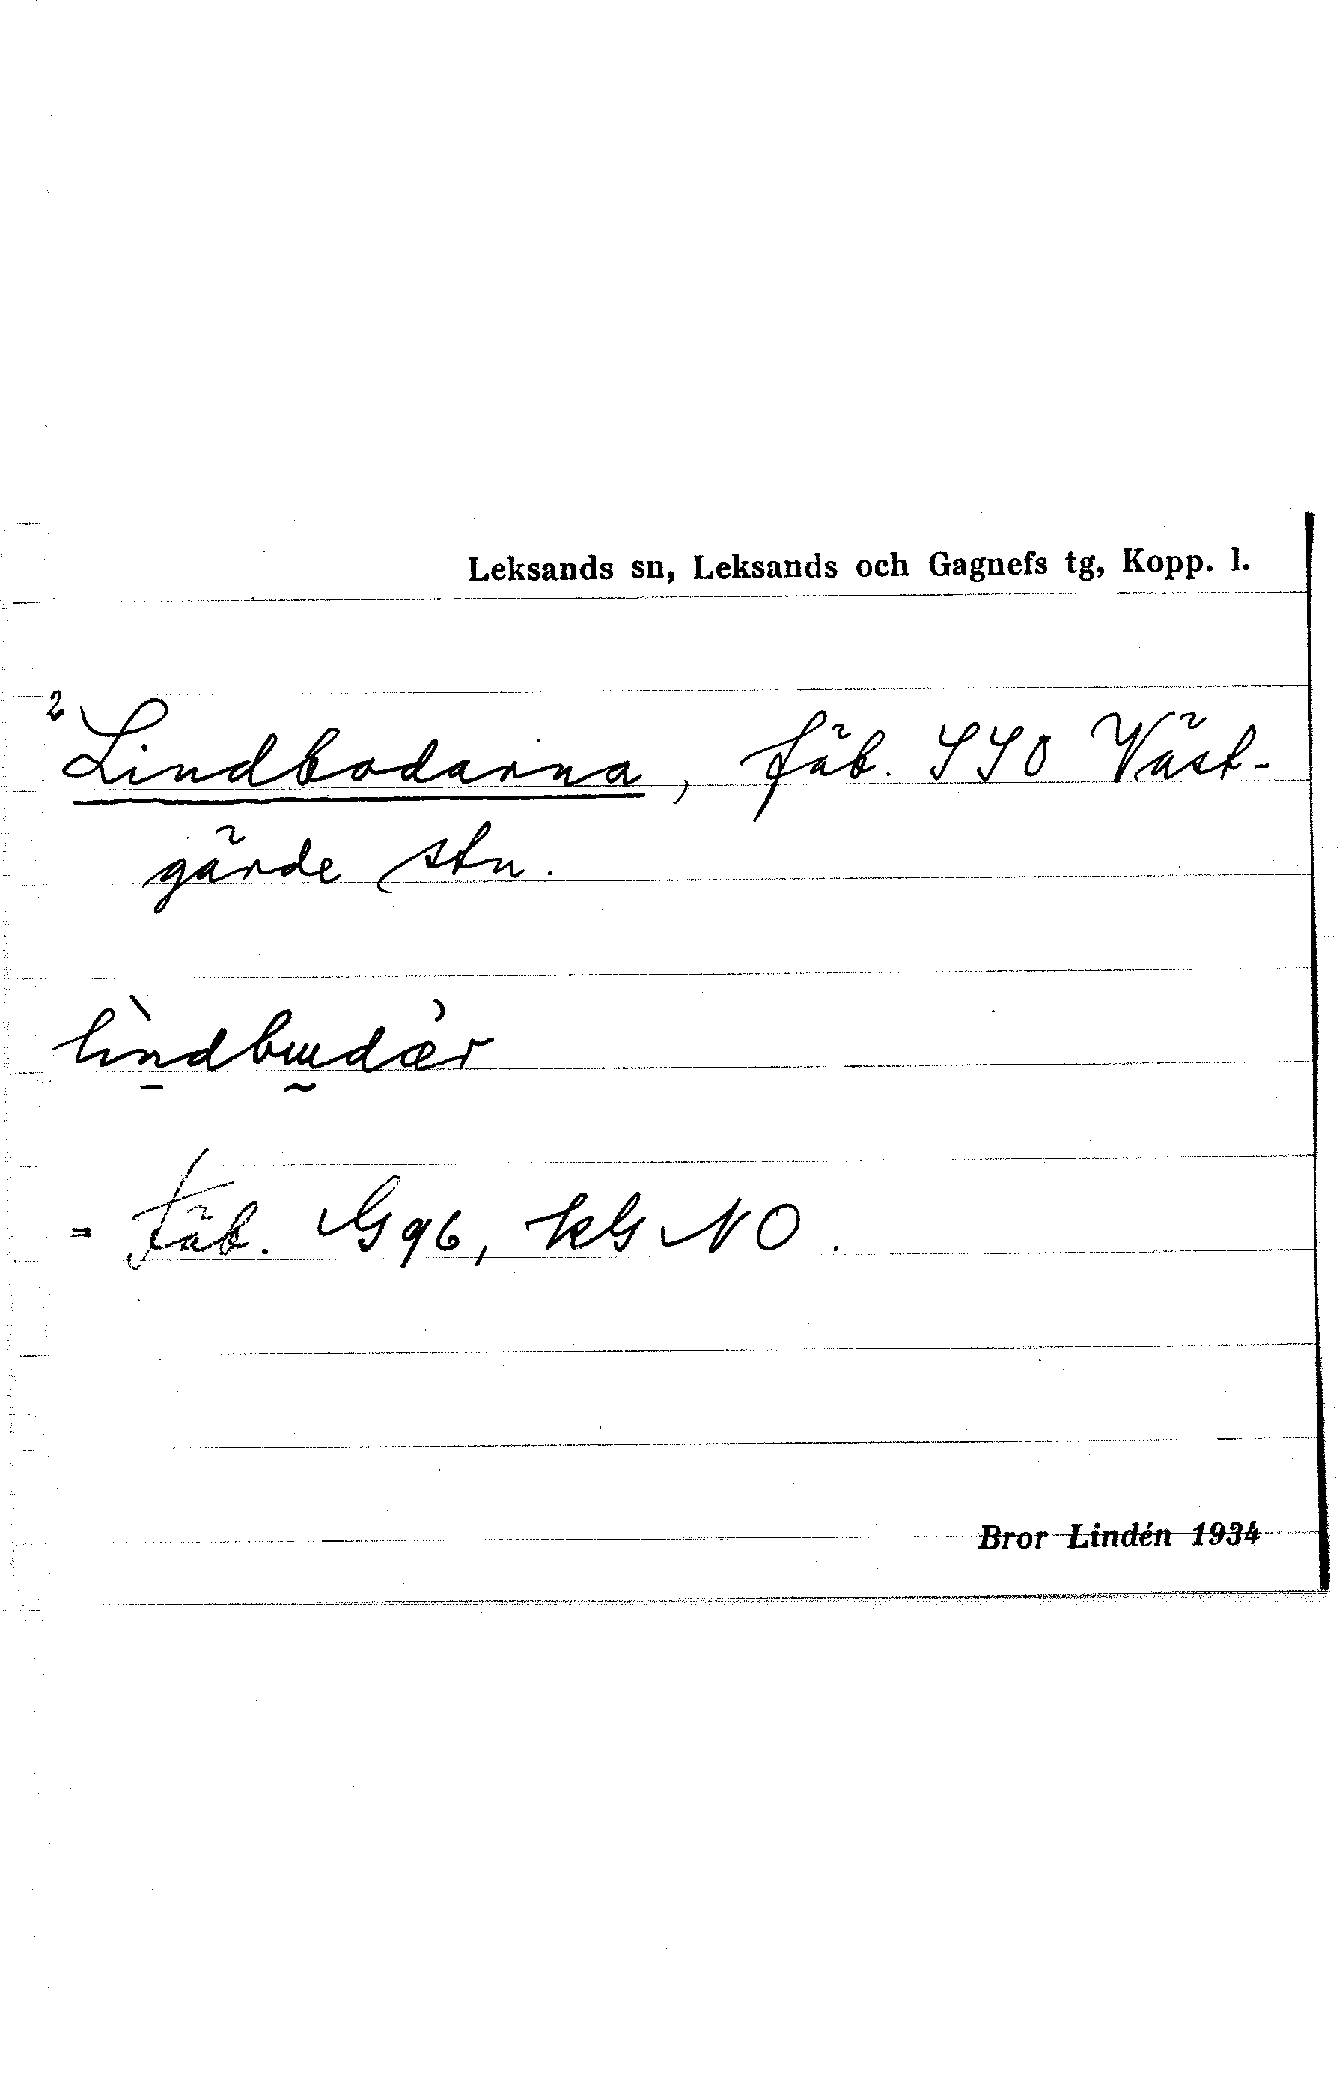 Leksands sn, Leksands och Gagnefs tg, Kopp. l.
2 Lindbodarna, fäb. SSO Väst-
gärde stn.
lìndbɯdæ̀r
= Fäb. G96, kG NO.
Bror Lindén 1934